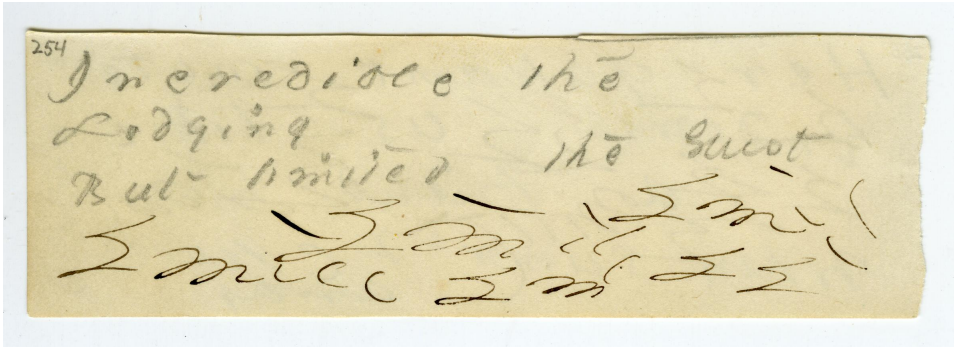 254
Incredible the
Lodging
But limited the Guest
Emil
Emil
Emili Em E E